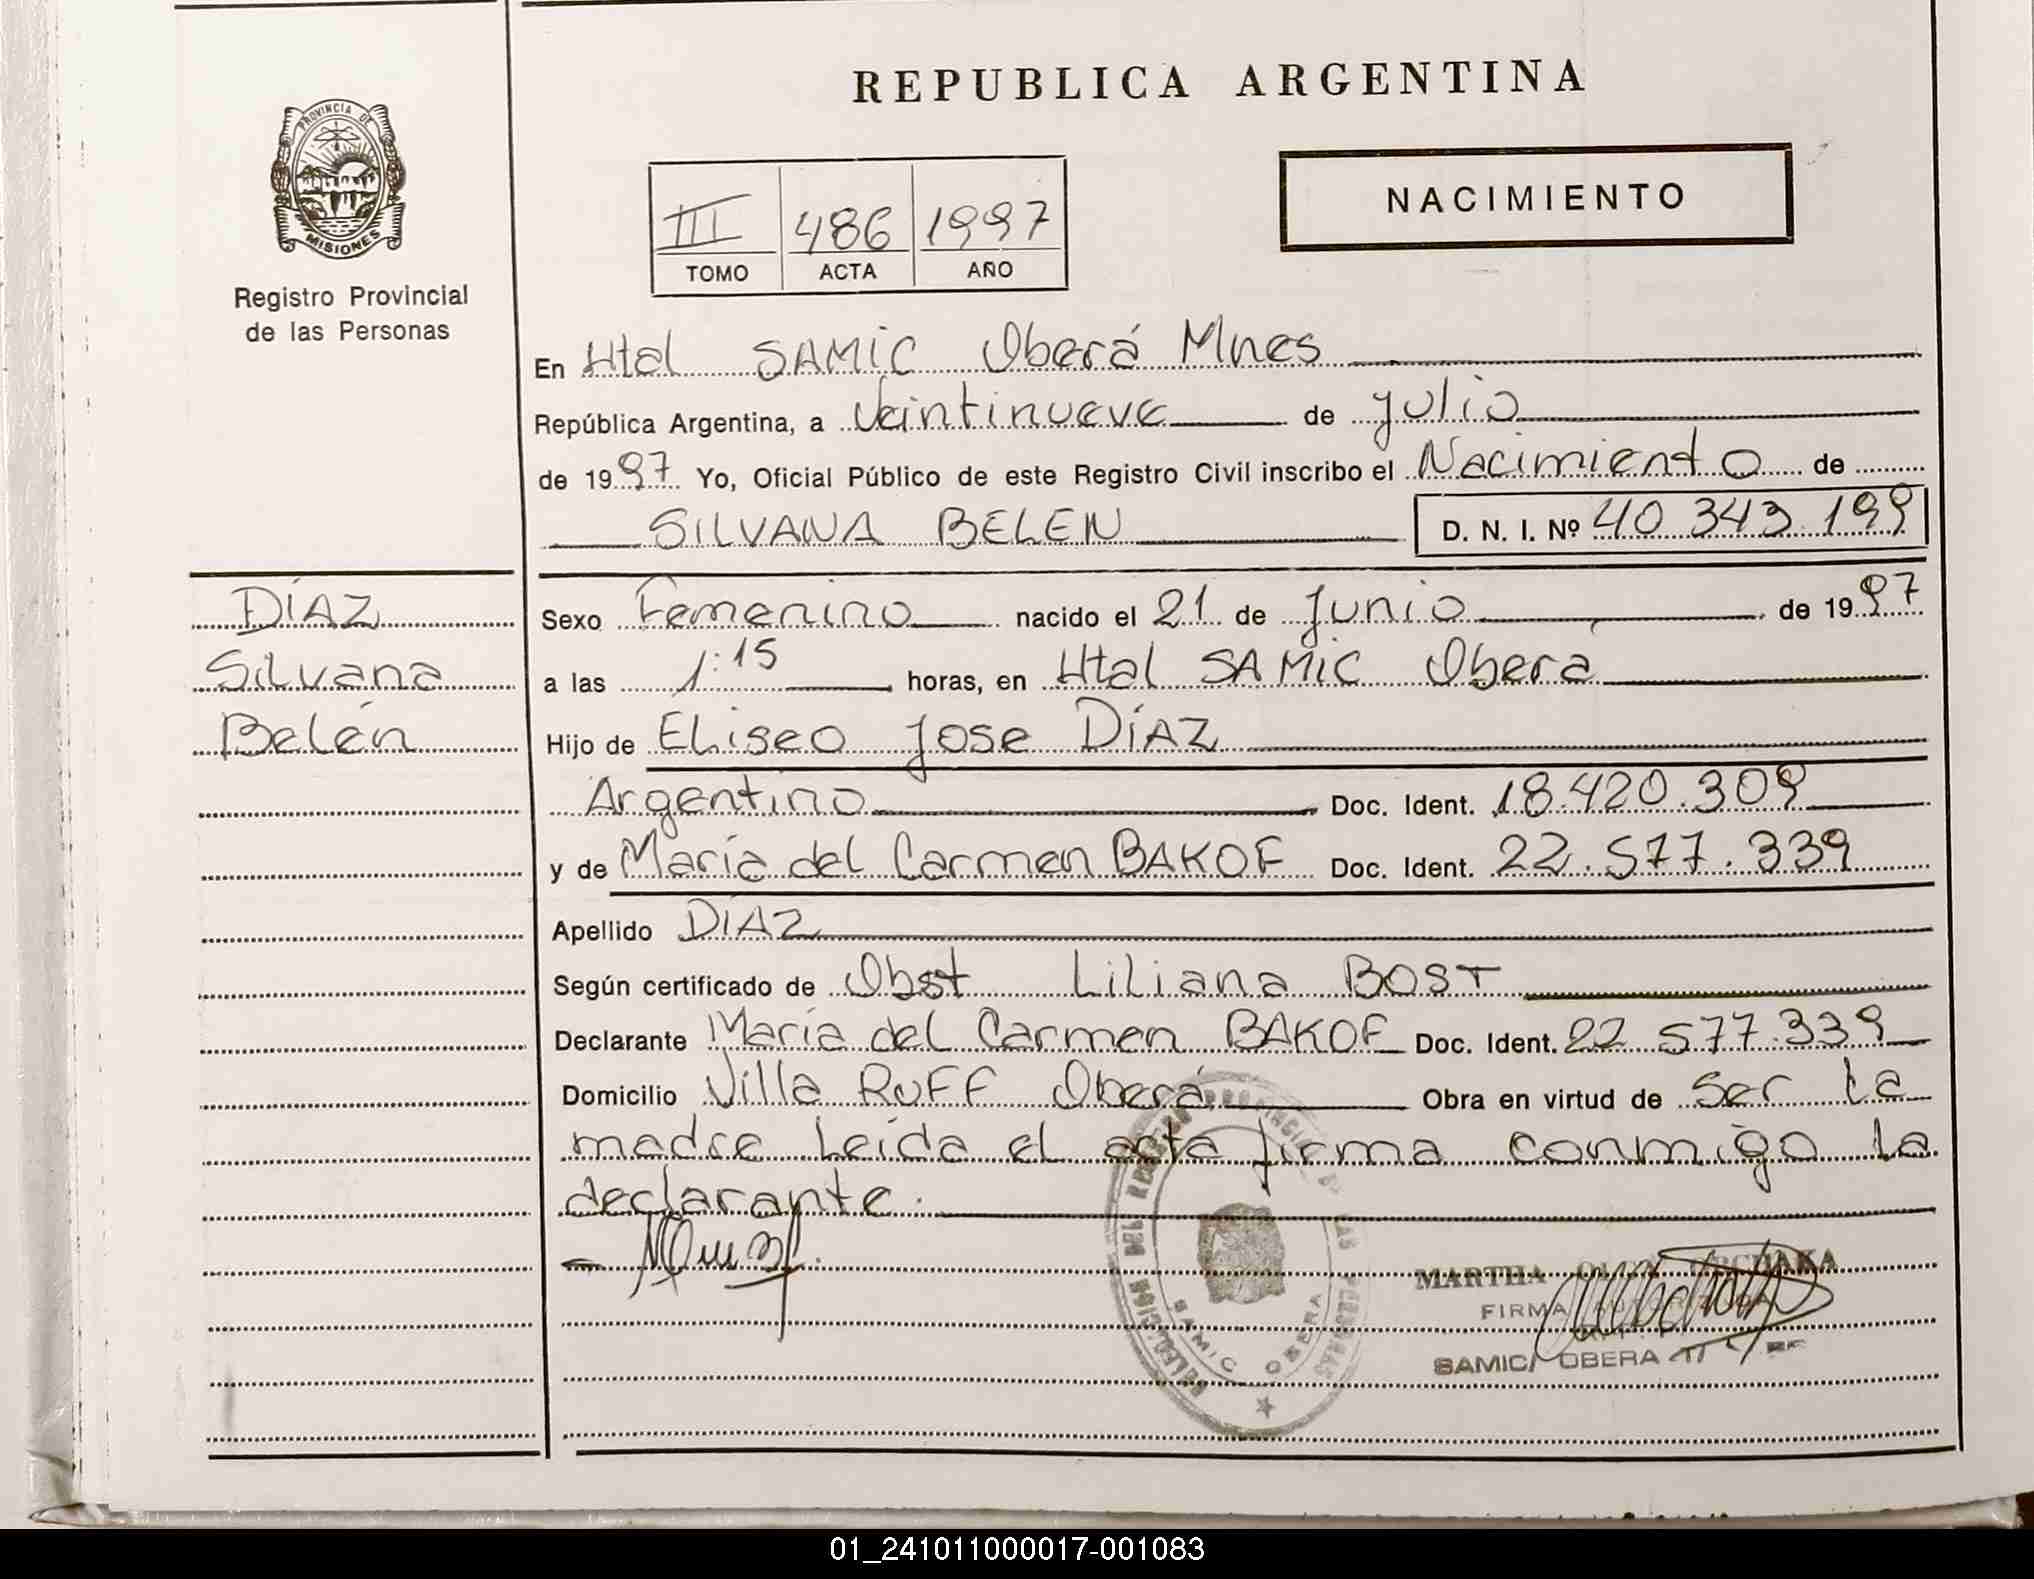 REPUBLICA ARGENTINA
PROVINCIA DE
MISIONES
Registro Provincial
de las Personas
NACIMIENTO
III 486 1997
TOMO ACTA AÑO
En Htal SAMIC Oberá Mnes
República Argentina, a Veintinueve de julio
de 1997 Yo, Oficial Público de este Registro Civil inscribo el Nacimiento de
SILVANA BELEN D. N. I. Nº 40 343.199
DÍAZ
Silvana
Belén
Sexo Femenino nacido el 21 de Junio de 1997
a las 1:15 horas, en Htal SAMIC Oberá
Hijo de Eliseo Jose DÍAZ
Argentino Doc. Ident. 18.420.309
y de María del Carmen BAKOF Doc. Ident. 22.577.339
Apellido DIAZ
Según certificado de Obst Liliana BOST
Declarante María del Carmen BAKOF Doc. Ident. 22 577.339
Domicilio Villa RUFF Oberá Obra en virtud de ser la
madre Leída el acta firma conmigo la
declarante.
DELEGACION DEL REGISTRO PROVINCIAL DE LAS PERSONAS
SAMIC OBERA
MARTHA
FIRMA
SAMIC OBERA
01_241011000017-001083